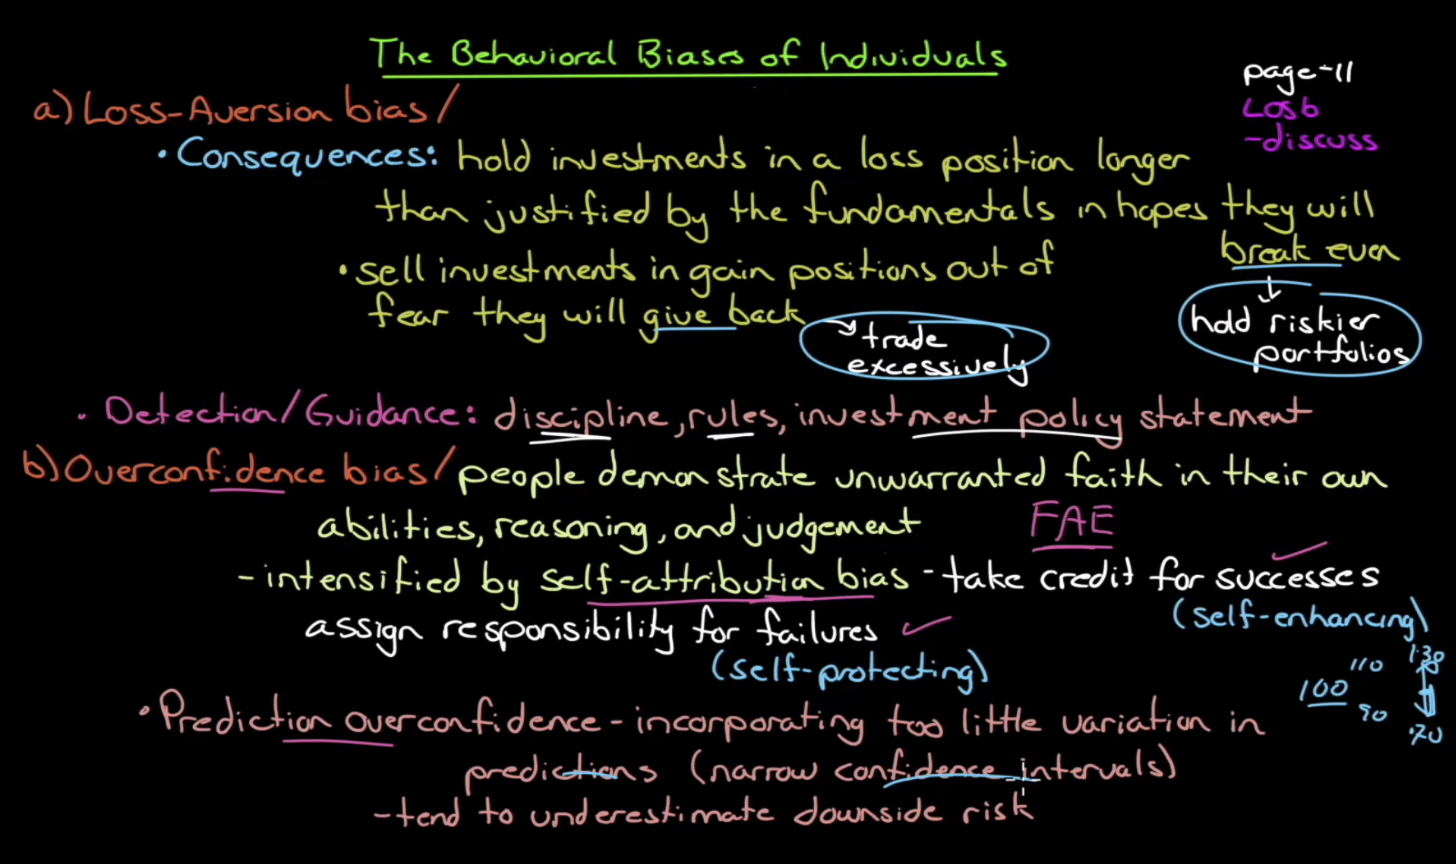 The Behavioral Biases of Individuals
page-11
LOS b
-discuss
a) Loss-Aversion bias/
• Consequences: hold investments in a loss position longer
than justified by the fundamentals in hopes they will
break even
hold riskier
portfolios
• sell investments in gain positions out of
fear they will give back
trade
excessively
• Detection/Guidance: discipline, rules, investment policy statement
b) Overconfidence bias/ people demonstrate unwarranted faith in their own
abilities, reasoning, and judgement
FAE
- intensified by self-attribution bias - take credit for successes
(self-enhancing)
assign responsibility for failures
(self-protecting)
• Prediction overconfidence - incorporating too little variation in
predictions (narrow confidence intervals)
- tend to underestimate downside risk
100
110
90
130
70